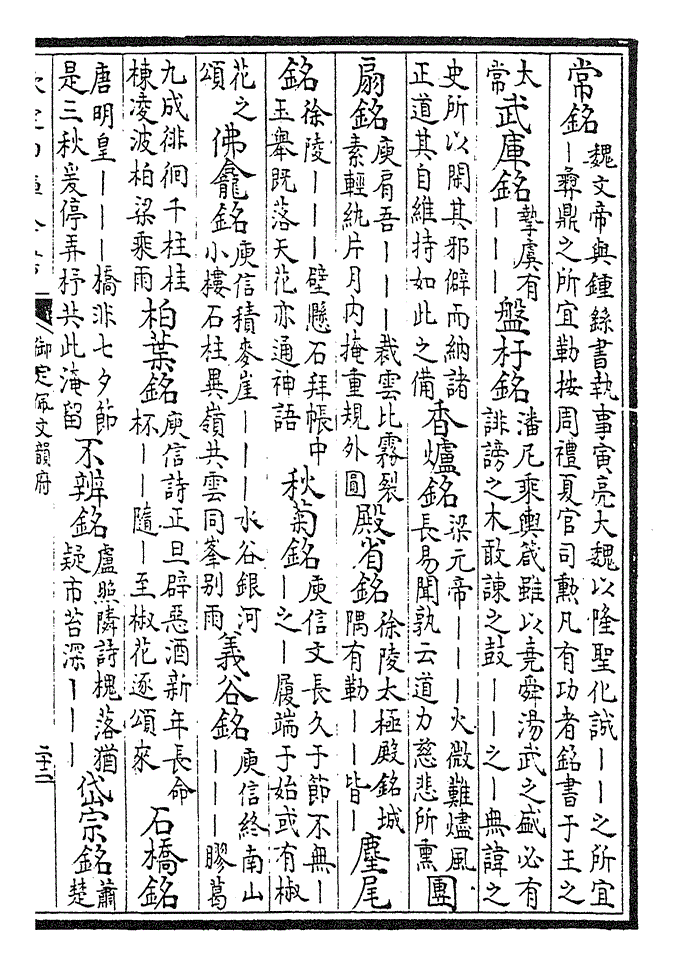 常銘魏文帝與鍾繇書執事寅亮大魏以隆聖化誠——之所宜—彝鼎之所宜勒按周禮夏官司勲凡有功者銘書于王之
太常武庫銘摯虞有———盤杅銘潘尼乘輿箴雖以堯舜湯武之盛必有誹謗之木敢諫之鼓——之—無諱之
史所以閑其邪僻而納諸正道其自維持如此之備香爐銘梁元帝———火微難燼風長易聞孰云道力慈悲所熏團
扇銘庾肩吾———裁雲比霧裂素輕紈片月内掩重規外圓殿省銘徐陵太極殿銘城隅有勒——皆—麈尾
銘徐陵———壁懸石拜帳中玉舉既落天花亦通神語秋菊銘庾信文長久于節不無——之—履端于始或有椒
花之頌佛龕銘庾信積麥崖———水谷銀河小樓石柱異嶺共雲同峯别雨義谷銘庾信終南山———膠葛
九成徘徊千柱桂棟凌波柏梁乘雨柏葉銘庾信詩正旦辟惡酒新年長命杯——隨—至椒花逐頌來石橋銘
唐明皇———橋非七夕節是三秋爰停弄杼共此淹留不辨銘盧照隣詩槐落猶疑市苔深———岱宗銘蕭楚
御定佩文韻府